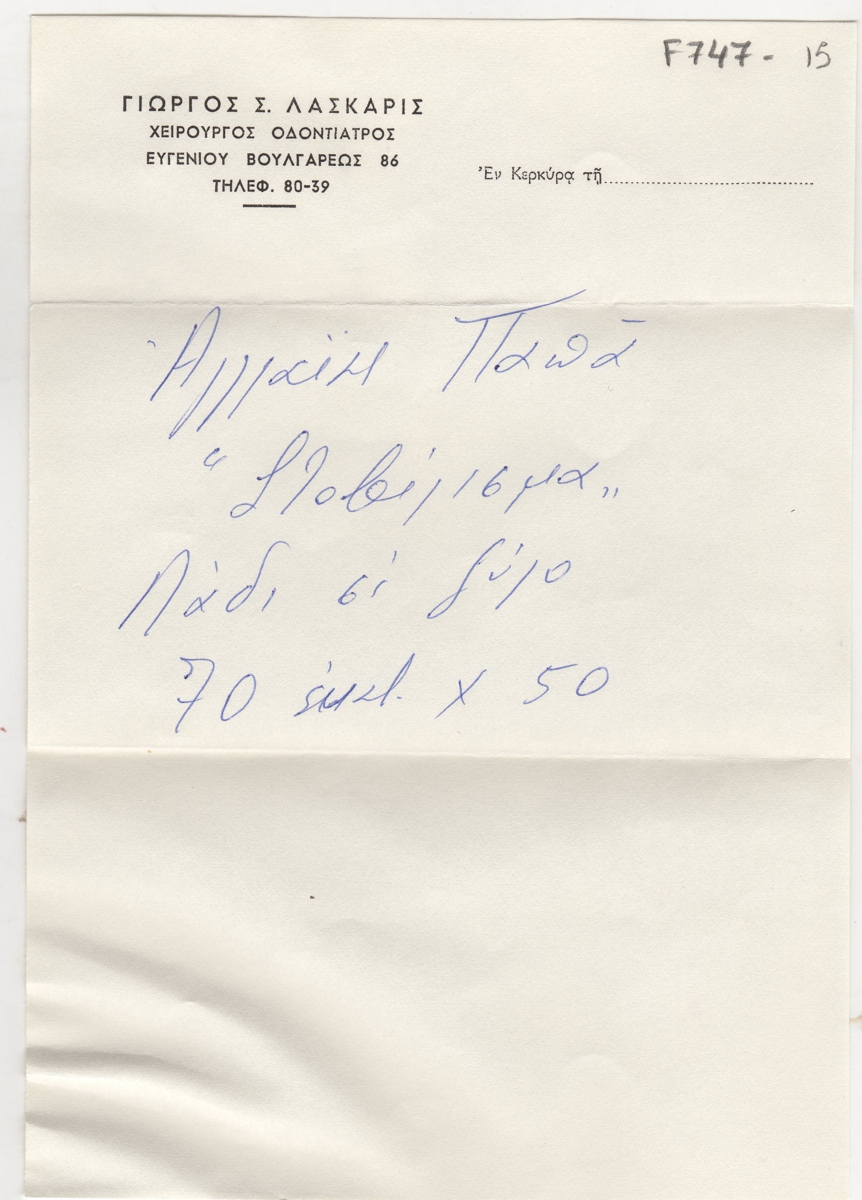 F747 - 15
ΓΙΩΡΓΟΣ Σ. ΛΑΣΚΑΡΙΣ
ΧΕΙΡΟΥΡΓΟΣ ΟΔΟΝΤΙΑΤΡΟΣ
ΕΥΓΕΝΙΟΥ ΒΟΥΛΓΑΡΕΩΣ 86
ΤΗΛΕΦ. 80-39
Ἐν Κερκύρᾳ τῇ
Ἀγλαΐκη Παπᾶ
Λάδι σέ ξύλο
70 ἑκατ. X 50